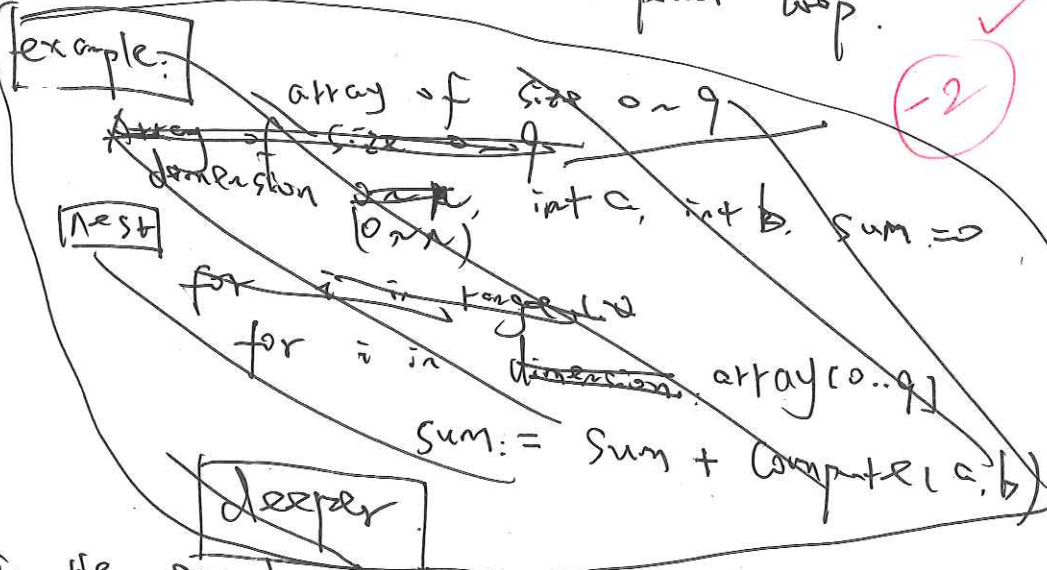 loop.
example:
-2
array of size 0~9
Array of size 0~9
dimension 0~n, int a, int b. sum = 0
(0~n)
nest
for i in range (
for i in dimension. array [0..9]
sum := sum + compute(a, b)
deeper
the